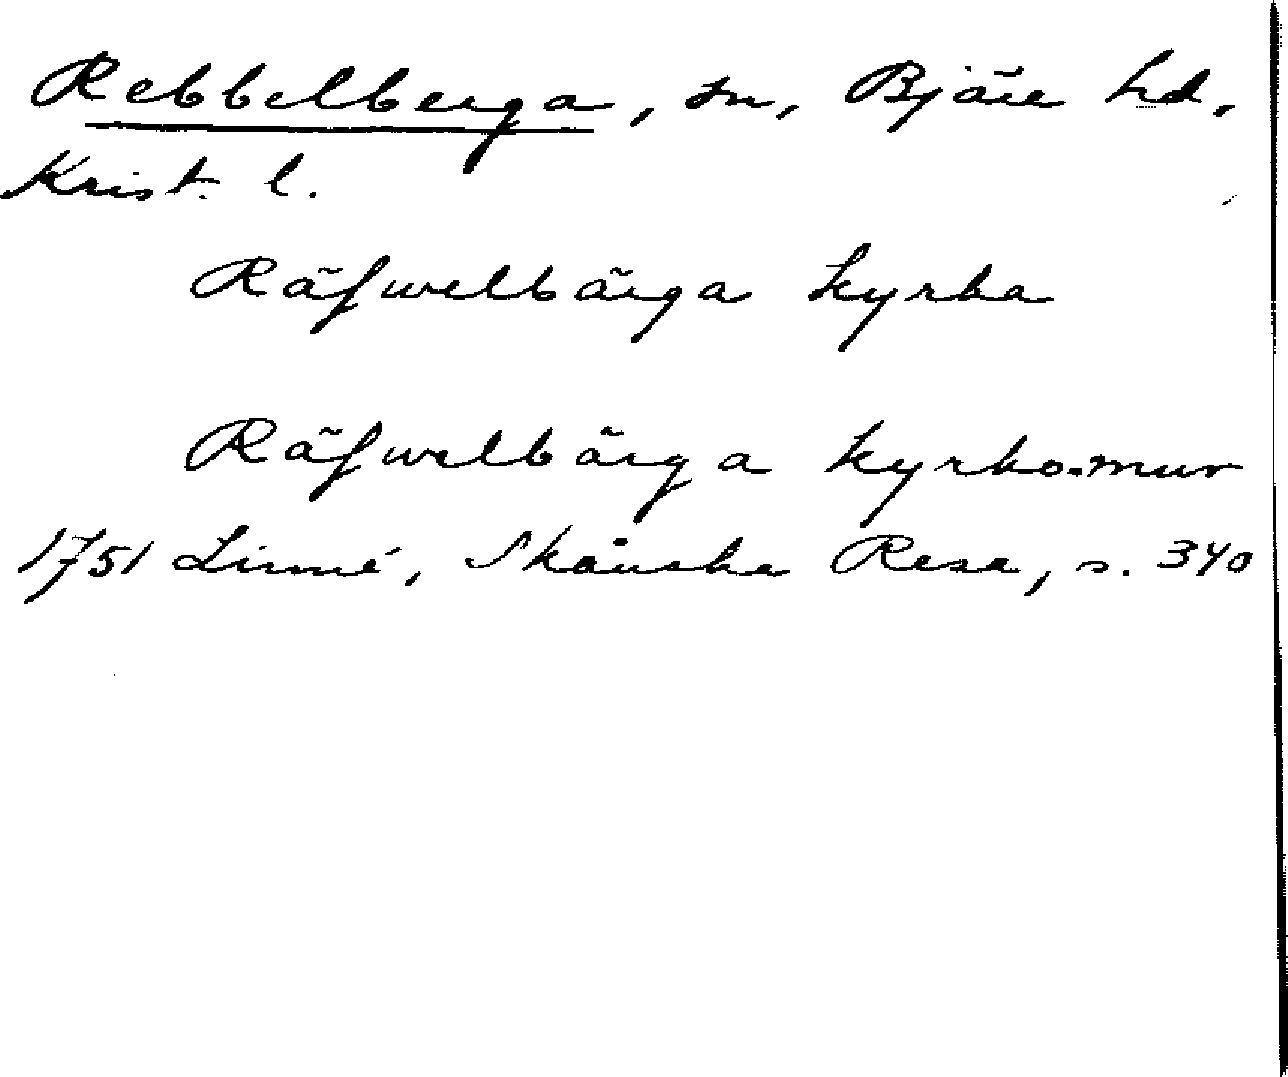 Rebbelberga, sn, Bjäre hd,
Krist. l.
Räfwelbärga kyrka
Räfwelbärga kyrko-mur
1751 Linné, Skånska Resa, s. 340